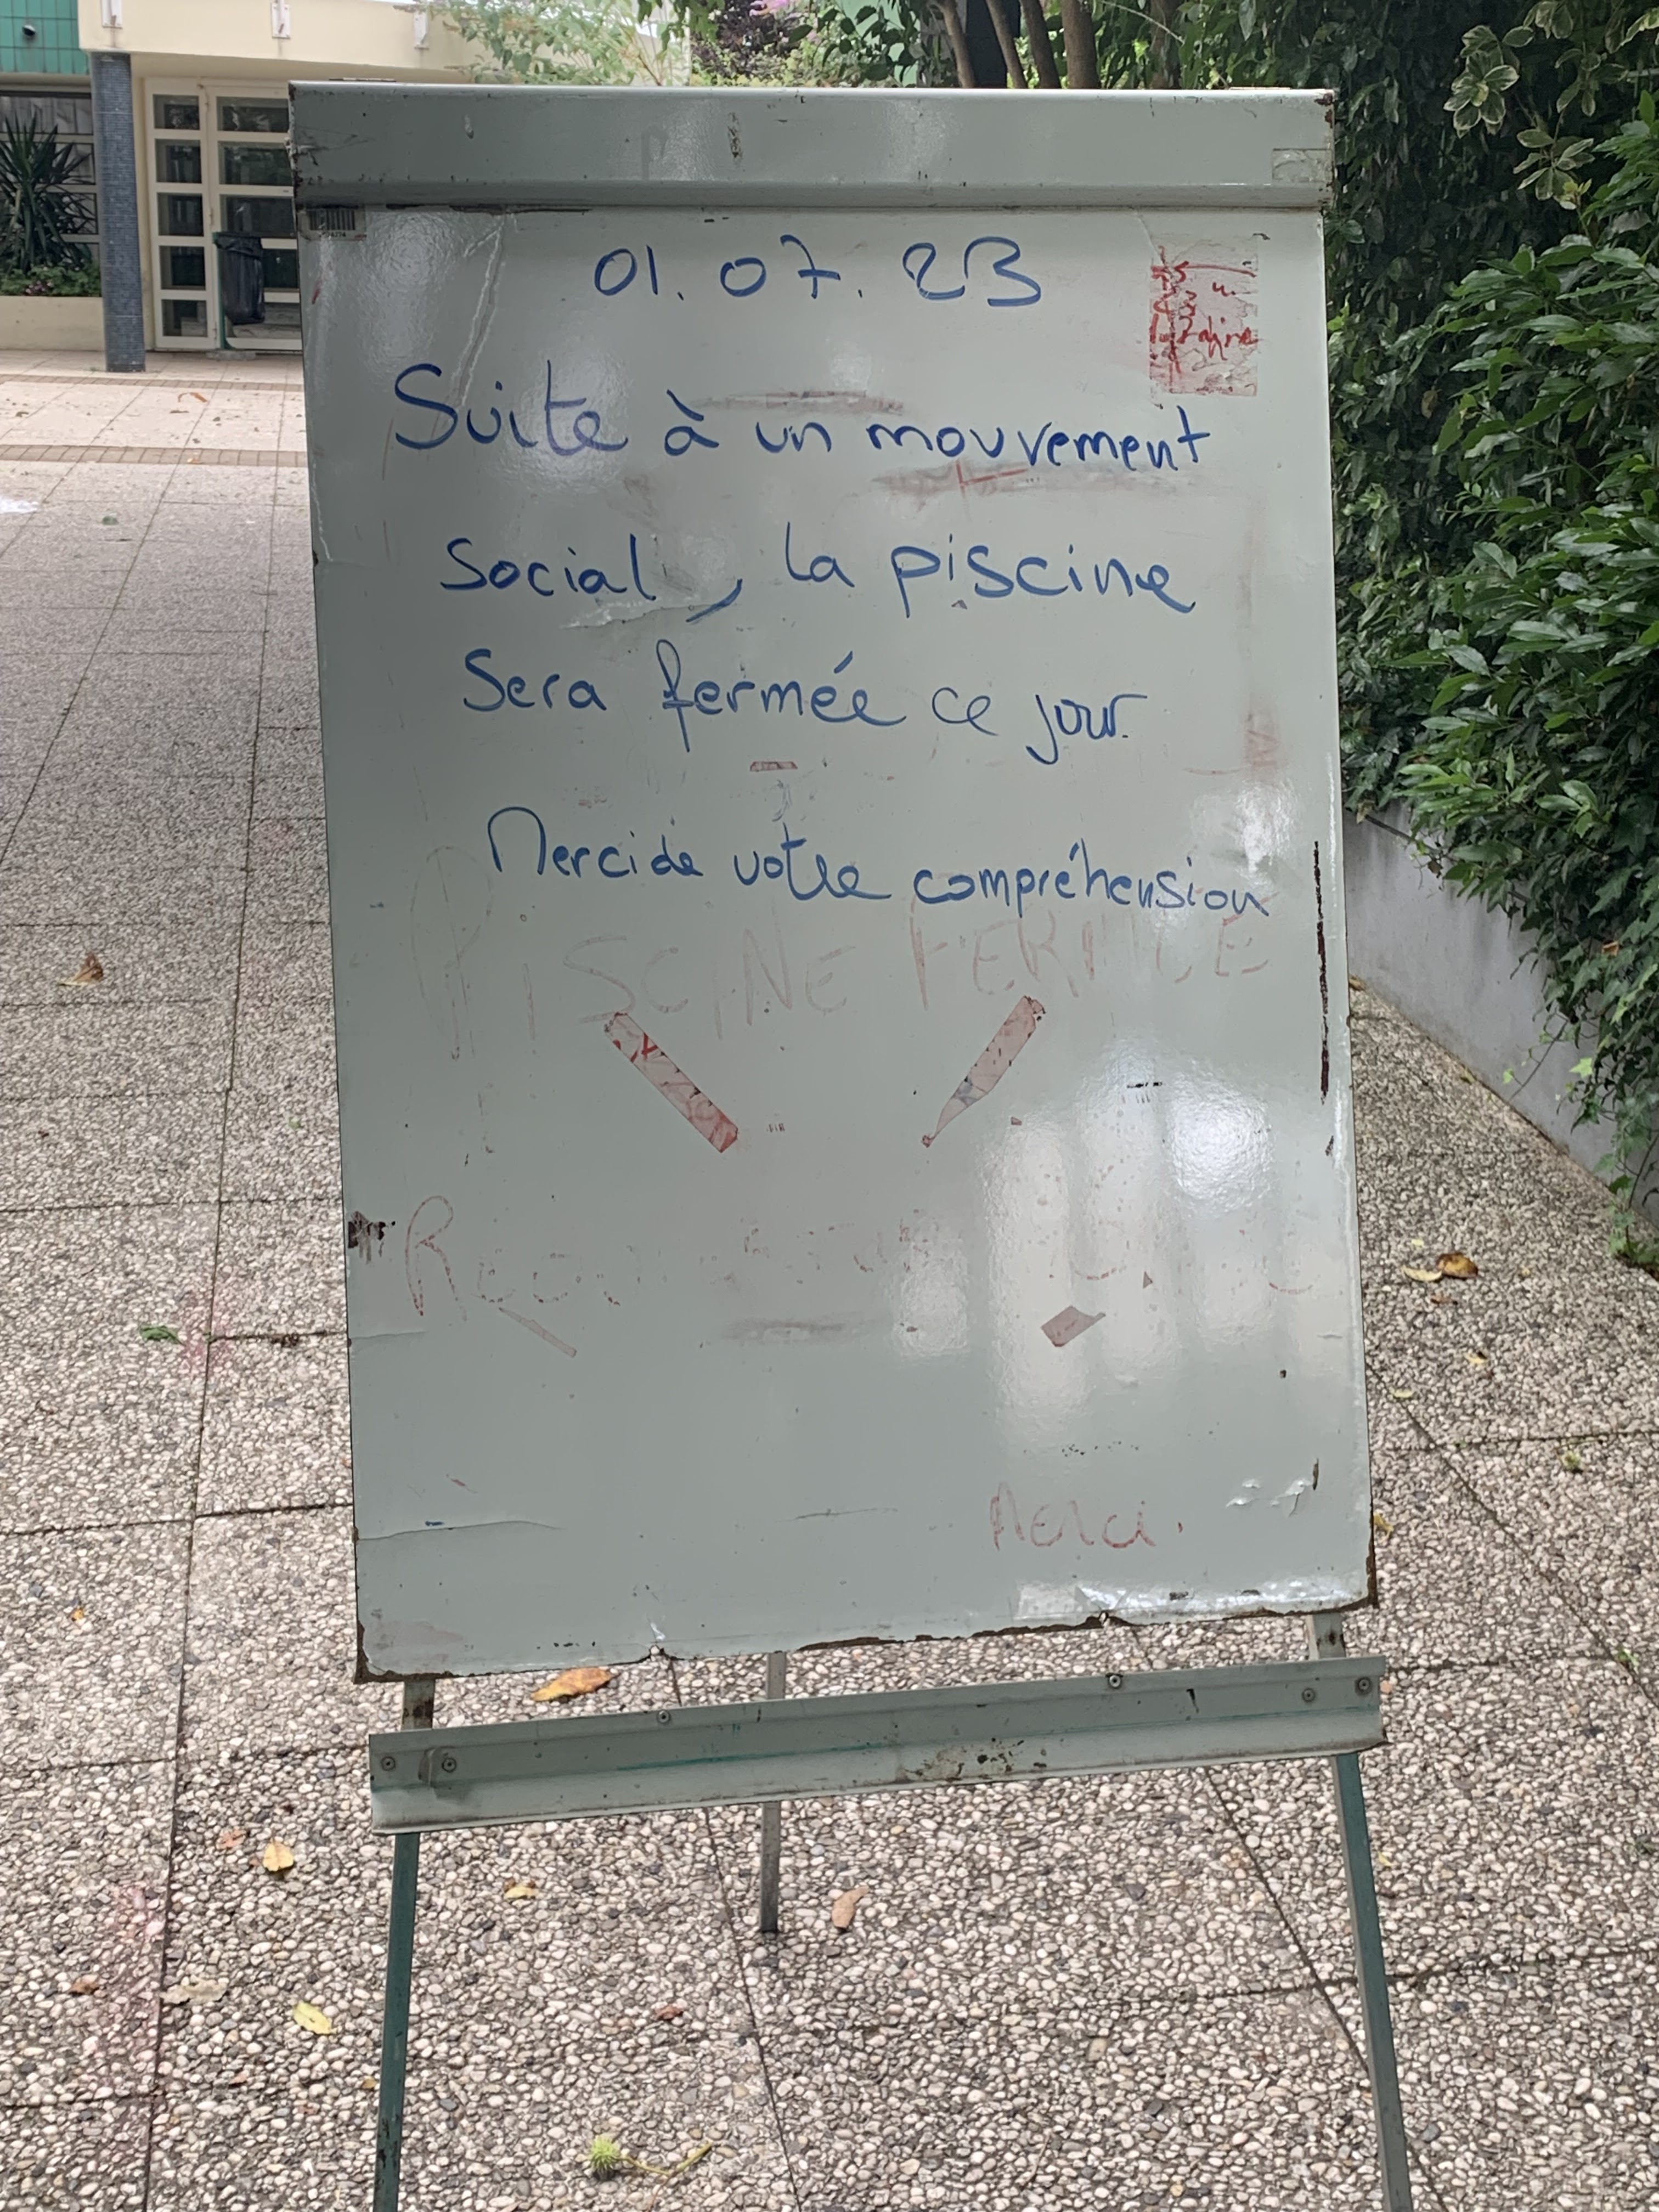 01.07.23
Suite à un mouvement
social, la piscine
sera fermée ce jour.
Merci de votre compréhension
PISCINE FERMÉE
Merci.